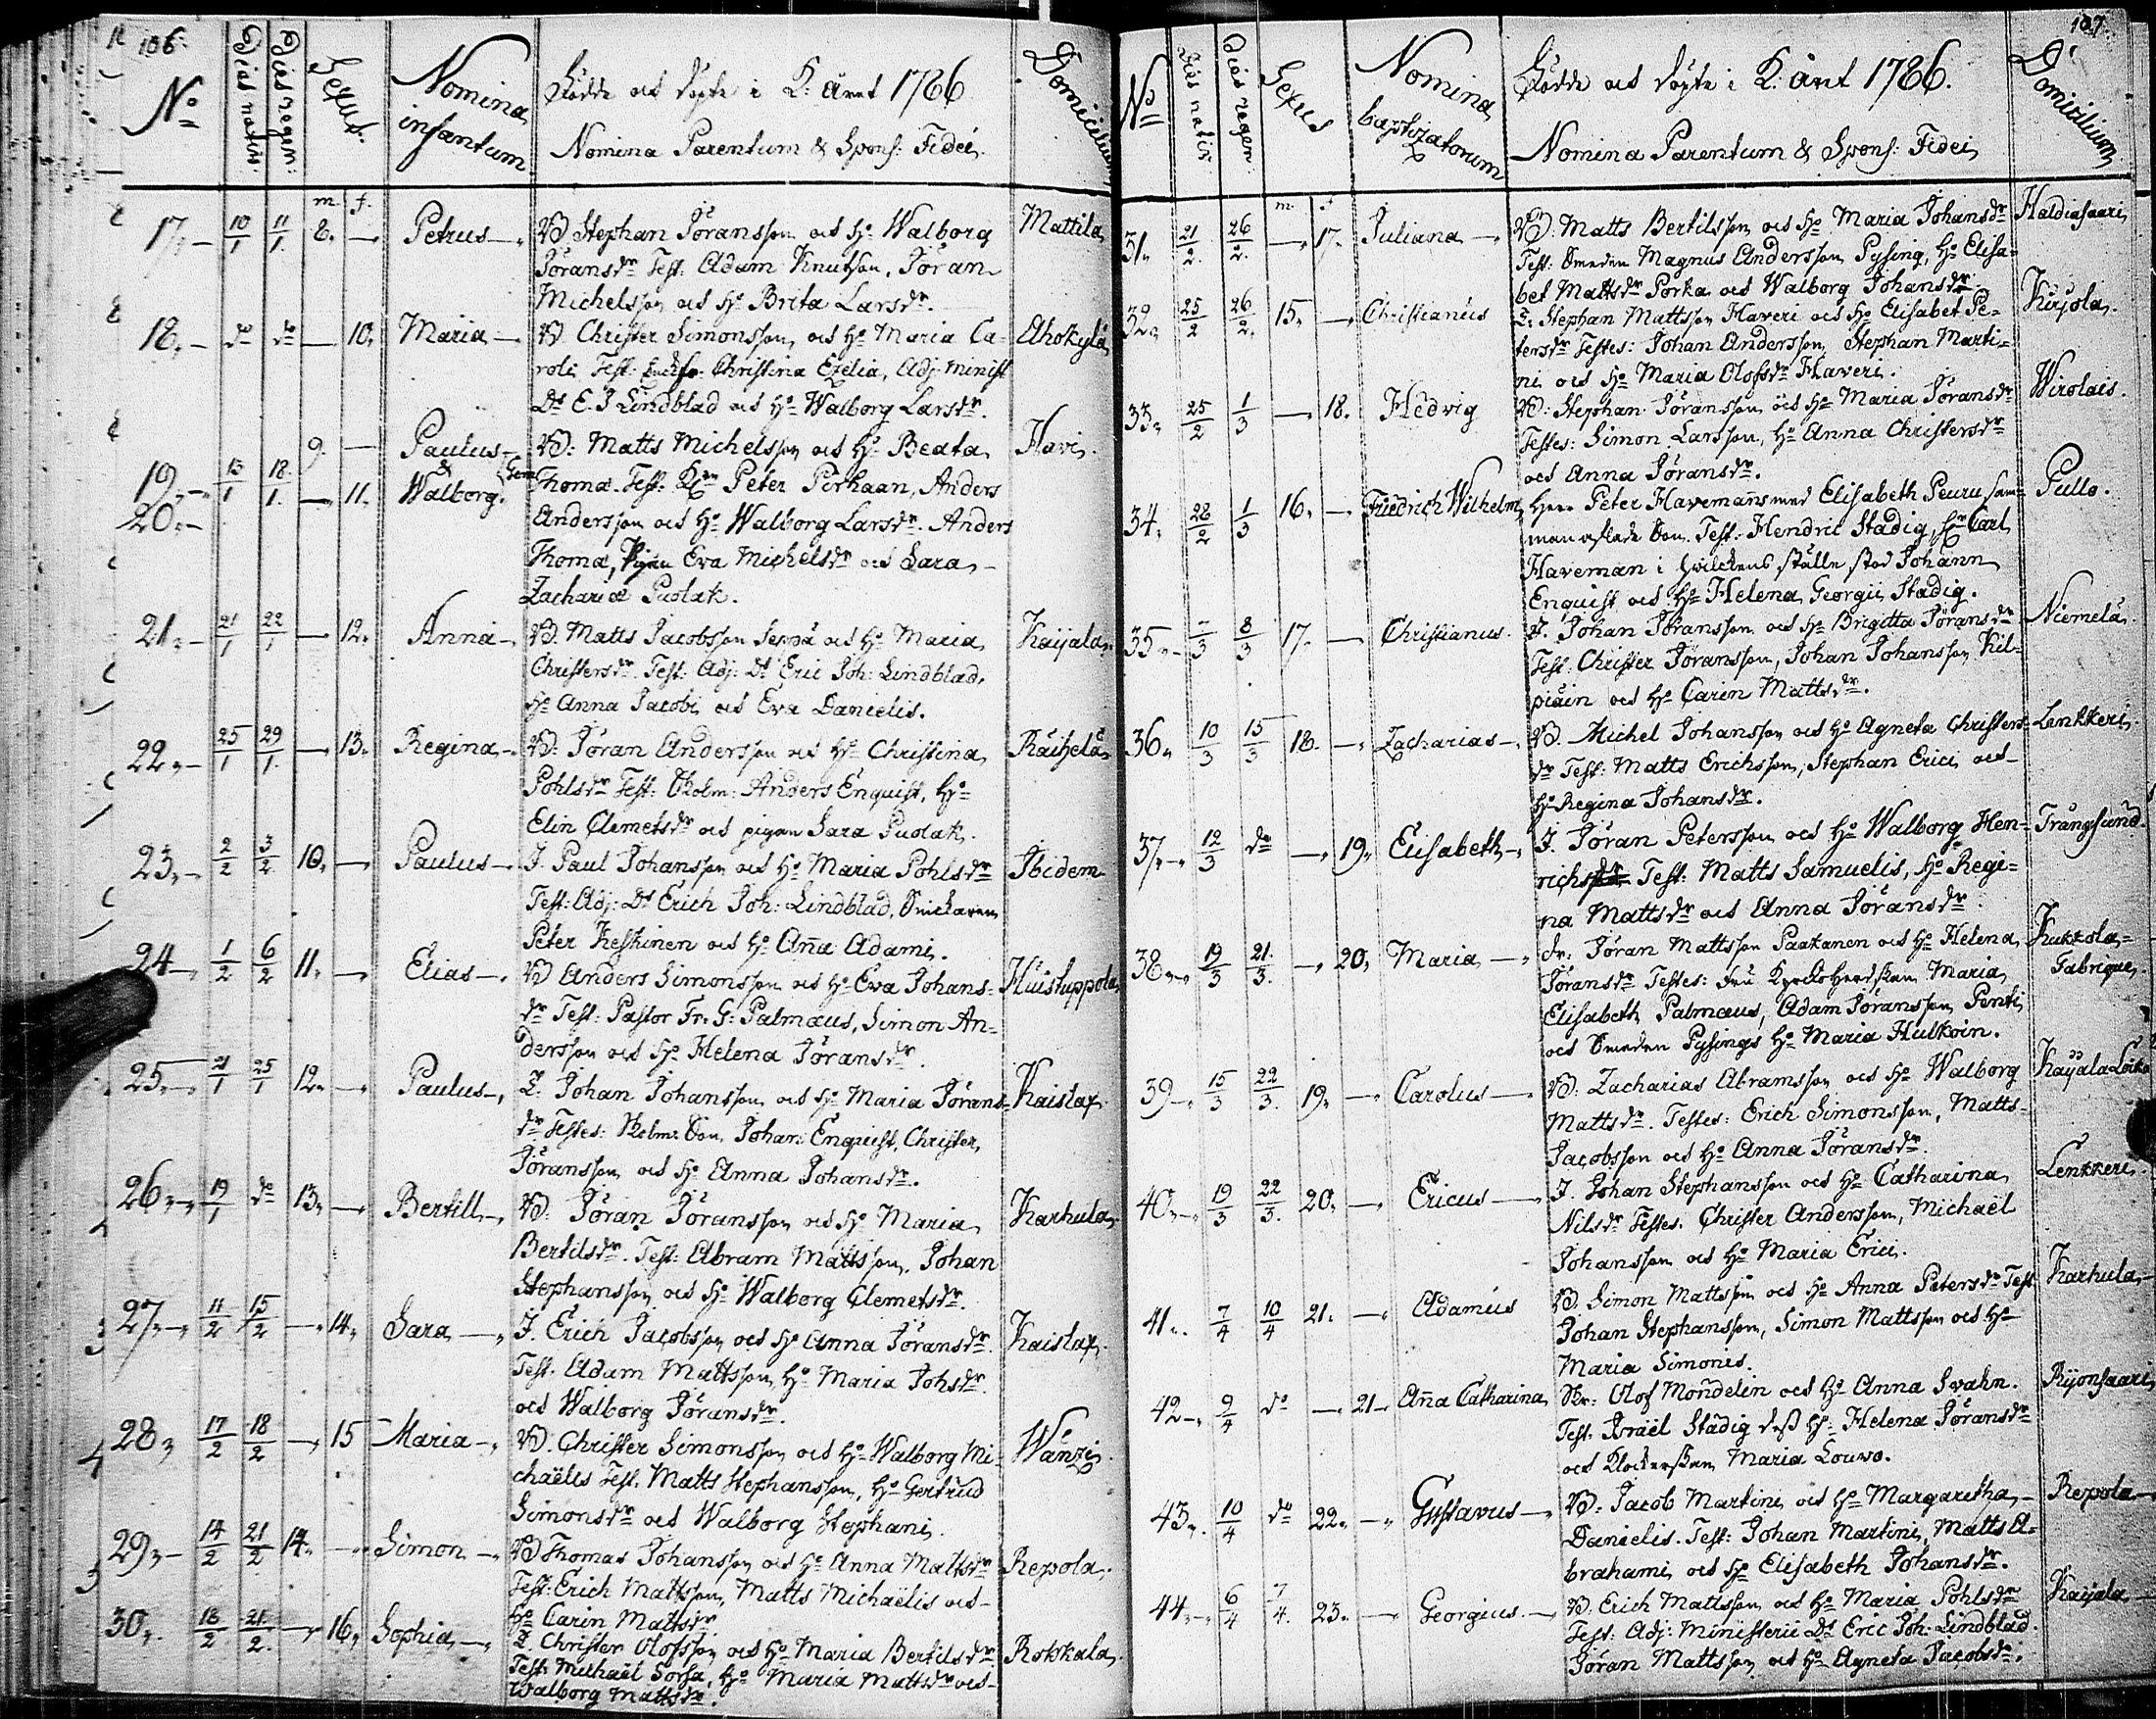 106.
Födde och döpte i K: året 1786
Nº
Dies nativ:
Dies regen:
Sexus.
Nomina infantum
Nomina Parentum & Spons: Fidei.
Domicilium
m. f.
17. 10/1 11/1 8. — Petrus — B Stephan Jöransson och H: Walborg Mattila
Jöransdr Test: Adam Knutson, Jöran
Michelsson och H: Brita Larsdr.
18. — do do — 10. Maria — B. Christer Simonsson och H: Maria Ca- Ahokylä
roli Test: Christina Exelia, Adj: minist
Ds E. J Lindblad och H: Walborg Larsdr.
9. — Paulus — B: Matts Michelsson och H: Beata Havi.
19. 13/1 18/1 — 11. & Walborg. Gem Thomæ. Test: Peter Perkaan, Anders
20. — Andersson och H: Walborg Larsdr. Anders
Thomæ, Pigan Eva Michelsdr och Sara
Zachariæ Puolak.
21. — 21/1 22/1 — 12. Anna — B. Matts Jacobsson Seppä och H: Maria Kaijala
Christersdr. Test: Adj: Ds Eric Joh: Lindblad,
H: Anna Jacobi och Eva Danielis.
22. — 25/1 29/1 — 13. Regina — B: Jöran Andersson och H: Christina Räihelä
Pohlsdr Test: Anders Enquist, H:
Elin Clemetsdr och pigan Sara Puolak.
23. — 2/2 3/2 10. — Paulus — J. Paul Johansson och H: Maria Pohlsdr Ibidem
Test: Adj: Ds Erich Joh: Lindblad, Snickaren
Peter Keskinen och H: Aña Adami.
24 — 1/2 6/2 11. — Elias — B Anders Simonsson och H: Eva Johans- Huistuppola
dr Test: Pastor Fr. G: Palmæus, Simon An-
dersson och H: Helena Jöransdr.
25. — 21/1 25/1 12. — Paulus — I. Johan Johansson och H: Maria Jörans- Kaislax
dr Testes: Son Johan Enquist, Christer
Jöransson och H: Anna Johansdr.
26. — 19/1 do 13. — Bertill — B: Jöran Jöransson och H: Maria Karhula
Bertilsdr. Test: Abram Mattsson, Johan
Stephansson och H: Walborg Clemetsdr.
27. — 11/2 15/2 — 14. Sara — J. Erich Jacobsson och H: Anna Jöransdr. Kaislax
Test. Adam Mattsson, H: Maria Johsdr
och Walborg Jöransdr.
28. 17/2 18/2 — 15 Maria — B. Christer Simonsson och H: Walborg Mi-
chaëlis Test. Matts Stephansson, H: Gertrud
Simonsdr och Walborg Stephani.
29. — 14/2 21/2 14. — Simon — B Thomas Johansson och H: Anna Mattsdr Repola
Test: Erich Mattsson, Matts Michaëlis och
H: Carin Mattsdr
30. 18/2 21/2 — 16. Sophia — I. Christer Olofsson och H: Maria Bertilsdr Rokkala
Test: Michaël Sorsa, H: Maria Mattsdr och
Walborg Mattsdr.
107.
Födde och döpte i K: året 1786.
Nº
Dies nativ:
Dies regen:
Sexus
Nomina baptizatorum
Nomina Parentum & Spons: Fidei
Domicilium
m. f.
31. 21/2 26/2 — 17. Juliana — B: Matts Bertilsson och H: Maria Johansdr Haldiasaari
Test: Smeden Magnus Andersson Pysing, H: Elisa-
bet Mattsdr Porka och Walborg Johansdr
32. 25/2 26/2 15. — Christianus I: Stephan Mattsson Haveri och H: Elisabet Pe- Kirjola
tersdr Testes: Johan Andersson, Stephan Marti-
ni och H: Maria Olofsdr Haveri.
33. 25/2 1/3 — 18. Hedvig B: Stephan Jöransson och H: Maria Jöransdr Wirolais.
Testes: Simon Larsson, H: Anna Christersdr
och Anna Jöransdr.
34. 28/2 1/3 16. — Friedrich Wilhelm Herr Peter Havemans med Elisabeth Peuru sam- Pullo.
man aflade Son. Test: Hendric Stadig, Hr Carl
Haveman i hvilckens ställe stod Johann
Enquist och H: Helena Georgii Stadig.
35. — 7/3 8/3 17. — Christianus. J. Johan Jöransson och H: Brigitta Jöransdr Niemelä.
Test. Christer Jöransson, Johan Johansson Kil-
piäin och H: Carin Mattsdr.
36. 10/3 15/3 18. — Zacharias — B. Michel Johansson och H: Agneta Christers- Lenkkeri
dr Test: Matts Erichsson, Stephan Erici och
H: Regina Johansdr.
37. — 12/3 do — 19. Elisabeth — J. Jöran Petersson och H: Walborg Hen- Trångsund
richsdr Test: Matts Samuelis, H: Regi-
na Mattsdr och Anna Jöransdr.
38. — 19/3 21/3 — 20. Maria — Jöran Mattsson Paakanen och H: Helena Kukkola-
Jöransdr Testes: Fru Kyrckoherdskan Maria Fabrique
Elisabeth Palmæus, Adam Jöransson Penti
och Smeden Pysings H: Maria Hulkoin.
39 — 15/3 22/3 19. — Carolus — B: Zacharias Abramsson och H: Walborg Kaijala
Mattsdr. Testes: Erich Simonsson, Matts
Jacobsson och H: Anna Jöransdr.
40. — 19/3 22/3 20. — Ericus — J. Johan Stephansson och H: Catharina Lenkkeri.
Nilsdr Testes. Christer Andersson, Michaël
Johansson och H: Maria Erici.
41. 7/4 10/4 21. — Adamus B. Simon Mattsson och H: Anna Petersdr Test Karhula
Johan Stephansson, Simon Mattsson och H:
Maria Simonis.
42. 9/4 do — 21 — Aña Catharina Olof Mondelin och H: Anna Svahn. Rijonsaari
Test. Israël Stadig dess H: Helena Jöransdr
och Klockerskan Maria Louwo.
43. 10/4 do 22. — Gustavus — B: Jacob Martini och H: Margaretha Repola
Danielis. Test: Johan Martini, Matts A-
brahami och H: Elisabeth Johansdr.
44. — 6/4 7/4 23. — Georgius. — B. Erich Mattsson och H: Maria Pohlsdr Kaijala
Test: Adj: Ministerii Ds Eric Joh: Lindblad.
Jöran Mattsson och H: Agneta Jacobsdr.